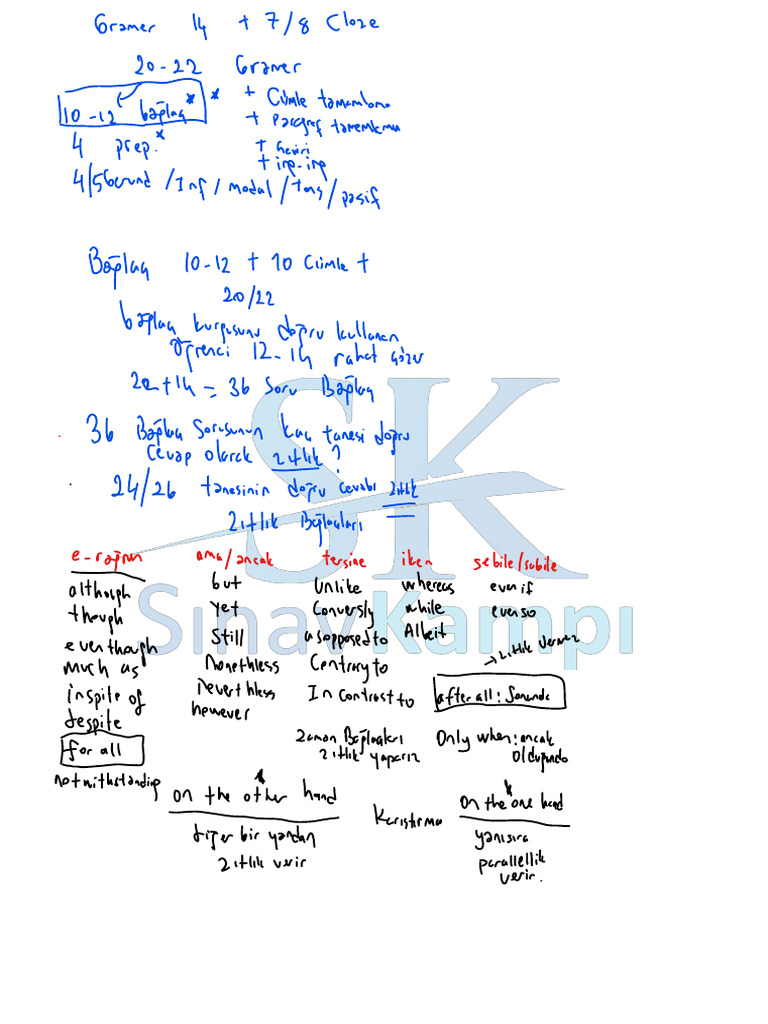 Gramer 14 + 7/8 Cloze
20-22 Gramer
10-12 bağlaç * * + Cümle tamamlama
+ Paragraf tamamlama
4 prep. * + Çeviri
+ inp-inp
4/5 Gerund / Inf / modal / Tens / pasif
Bağlaç 10-12 + 10 Cümle +
20/22
bağlaç kurgusunu doğru kullanan
Öğrenci 12-14 rahat çözer
22+14 = 36 Soru Bağlaç
36 Bağlaç Sorusunun kaç tanesi doğru
Cevap olarak zıtlık?
24/26 tanesinin doğru cevabı zıtlık
Zıtlık Bağlaçları
e-rağmen ama/ancak tersine iken sebile/sabile
although but Unlike whereas even if
though Yet Conversly while even so
eventhough Still as opposed to Albeit
→ zıtlık vermez
much as Nonethless Contrary to
inspite of Neverthless In contrast to after all: Sonunda
despite however
for all Zaman Bağlaçları Only when: ancak
zıtlık yaparız olduğunda
notwithstanding
on the other hand Karıştırma on the one hand
diğer bir yandan yanısıra
zıtlık verir parallellik
verir.
SK
SınavKampı